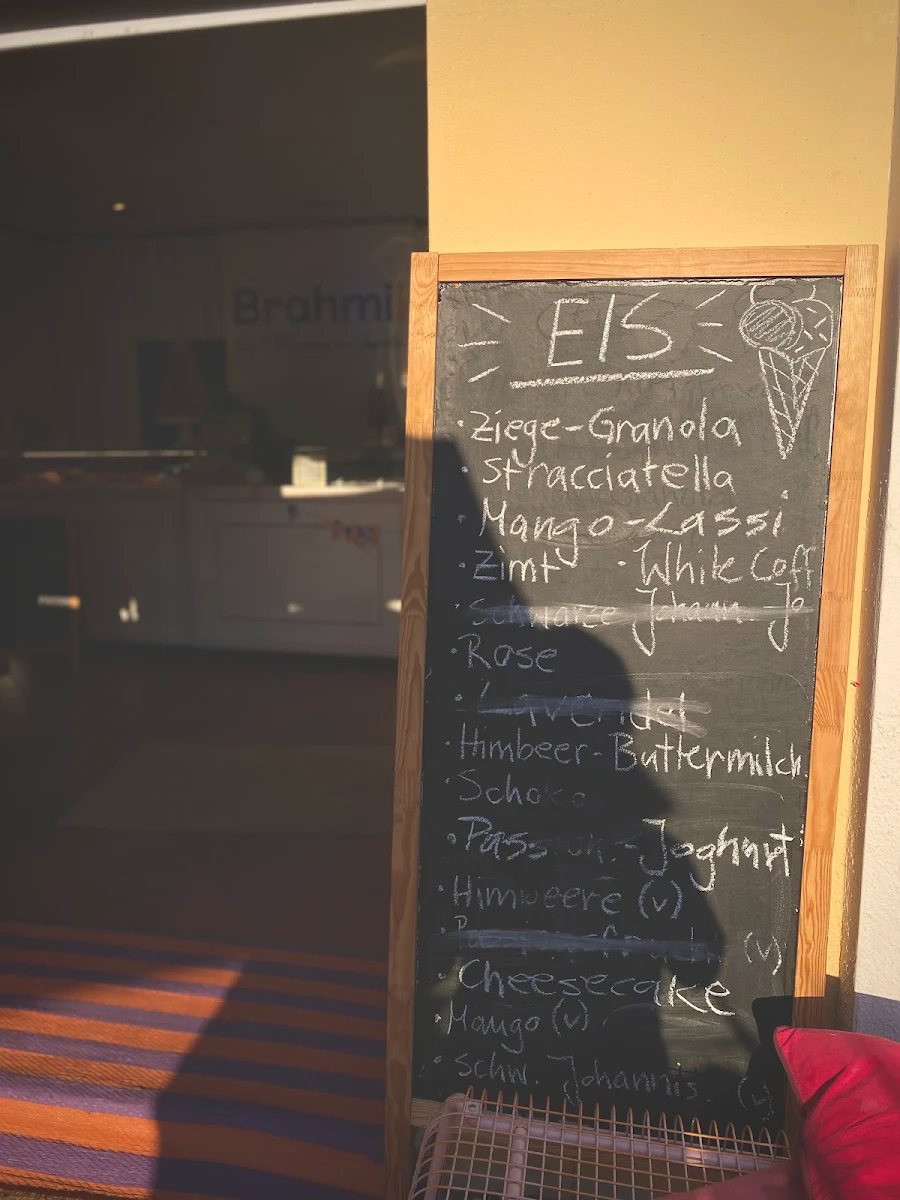 Brahmi
EIS
·Ziege-Granola
·Stracciatella
·Mango-Lassi
·Zimt ·White Coff
·Schwarze Johann-Jo
·Rose
·Lavendel
·Himbeer-Buttermilch
·Schoko
·Passion-Joghurt
·Himbeere (v)
(v)
·Cheesecake
·Mango (v)
·schw. Johannis. (v)